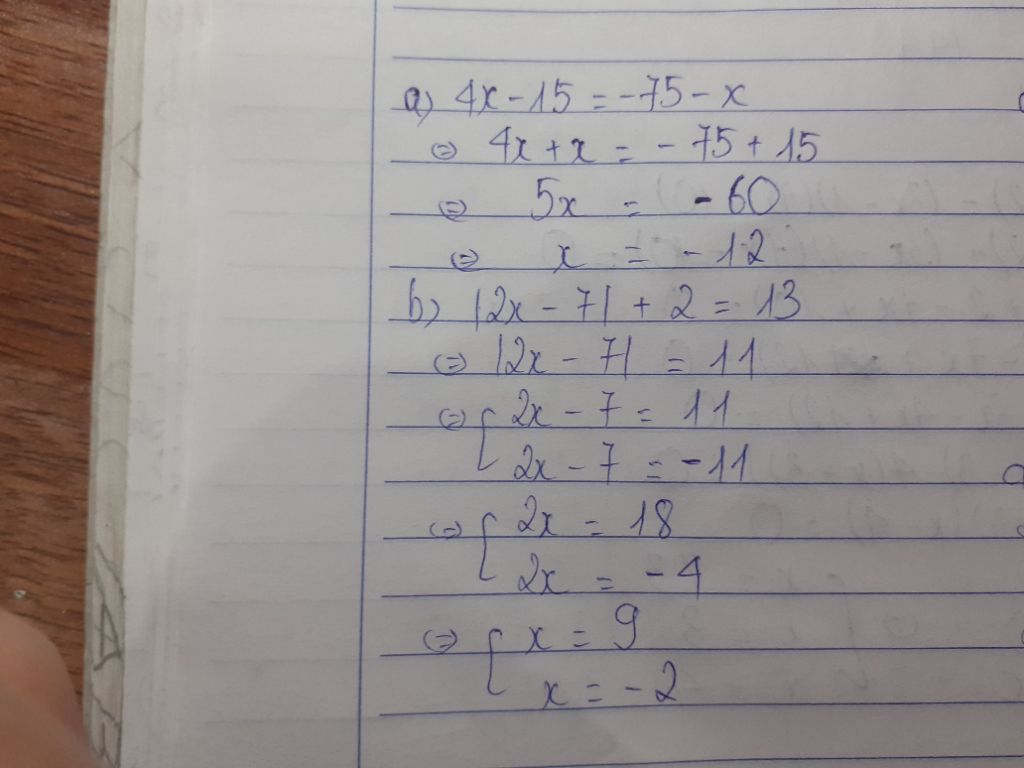 a) 4x - 15 = -75 - x
⇔ 4x + x = - 75 + 15
⇔ 5x = - 60
⇔ x = - 12
b) |2x - 7| + 2 = 13
⇔ |2x - 7| = 11
⇔ [ 2x - 7 = 11
2x - 7 = -11
⇔ [ 2x = 18
2x = - 4
⇔ [ x = 9
x = - 2